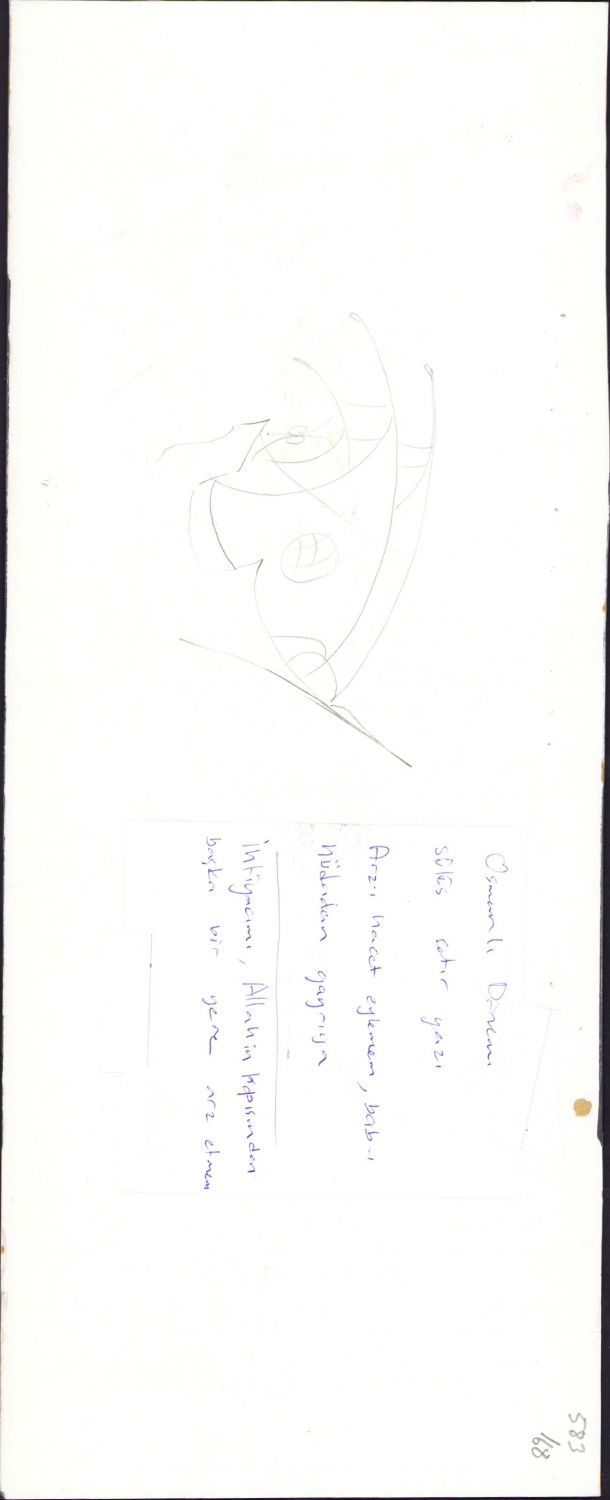 Osmanlı Dönemi
sülüs satır yazı
Arz-ı hacet eylemem, bab-ı
hüdadan gayrıya
İhtiyacımı, Allahın kapısından
başka bir yere arz etmem
583
168